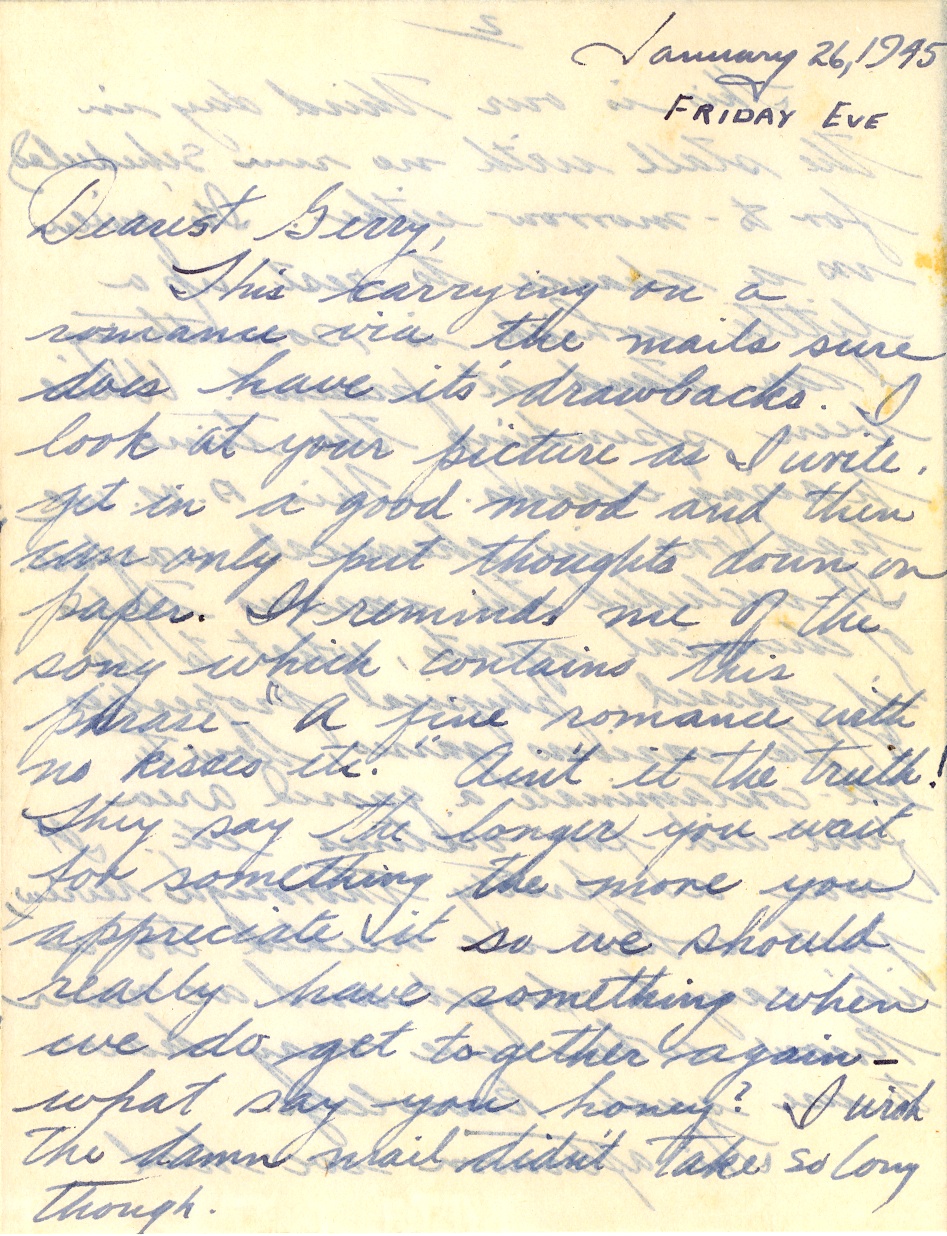 January 26, 1945
FRIDAY EVE
Dearest Gerry,
This carrying on a
romance via the mails sure
does have its' drawbacks. I
look at your picture as I write,
get in a good mood and then
can only put thoughts down on
paper. It reminds me of the
song which contains this
phrase - "A fine romance with
no kisses etc." Ain't it the truth!
They say the longer you wait
for something the more you
appreciate it so we should
really have something when
we do get together again -
what say you honey? I wish
the damn mail didn't take so long
though.